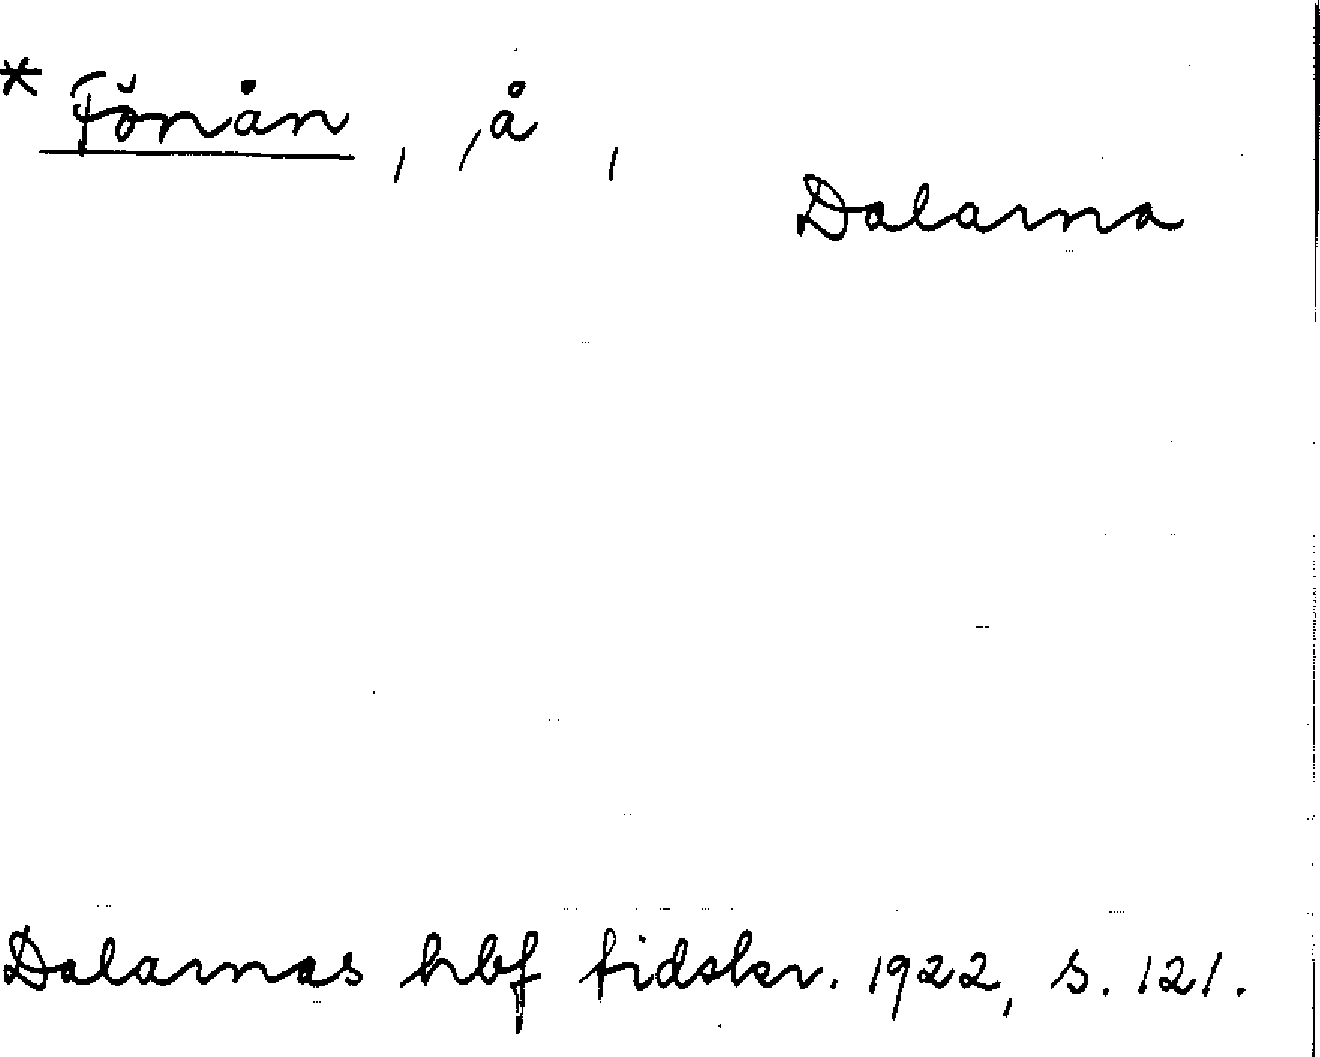 * Fönån, ,å ,
Dalarna
Dalarnas hbf tidskr. 1922, s. 121.